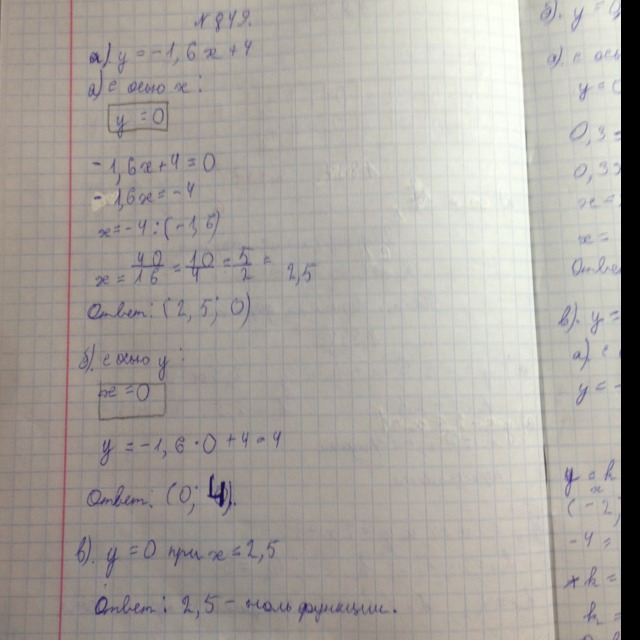 № 849.
а) y = -1,6x + 4
а) с осью x:
y = 0
-1,6x + 4 = 0
-1,6x = -4
x = -4 : (-1,6)
x = 40/16 = 10/4 = 5/2 = 2,5
Ответ: (2,5; 0)
б) с осью y:
x = 0
y = -1,6 · 0 + 4 = 4
Ответ: (0; 4).
в) y = 0 при x = 2,5
Ответ: 2,5 - ноль функции.
б). y =
а) с ось
y = 0
0,3
x =
Ответ
в). y =
а) с
y = -
(-2,
-4 =
h =